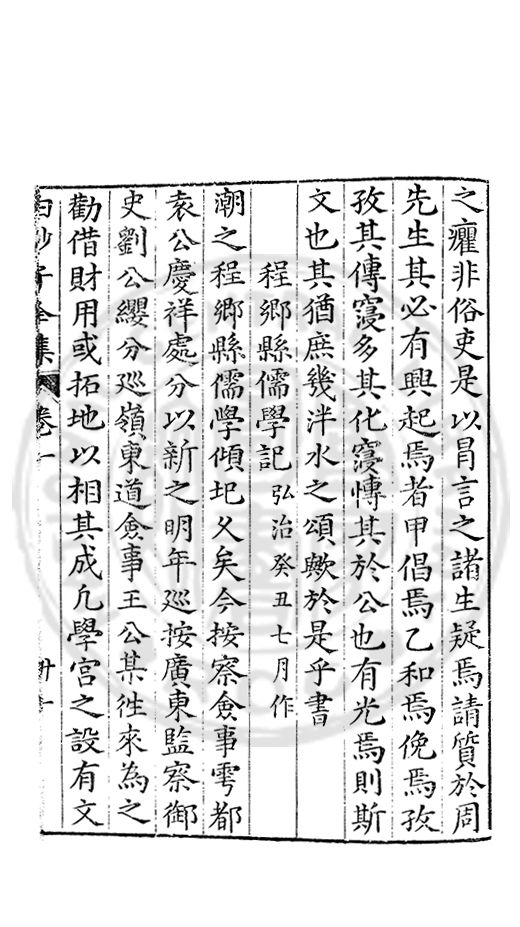 之癯非俗吏是以冒言之諸生疑焉請質於周
先生其必有興起焉者甲倡焉乙和焉俛焉孜
孜其傳寖多其化寖慱其於公也有光焉則斯
文也其猶庶幾泮水之頌歟於是乎書
程鄉縣儒學記弘治癸丑七月作
潮之程鄉縣儒學傾圯乆矣今按察僉事雩都
袁公慶祥處分以新之明年廵按廣東監察御
史劉公纓分廵嶺東道僉事王公某徃來為之
勸借財用或拓地以相其成凢學宮之設有文
白沙子全集 卷一